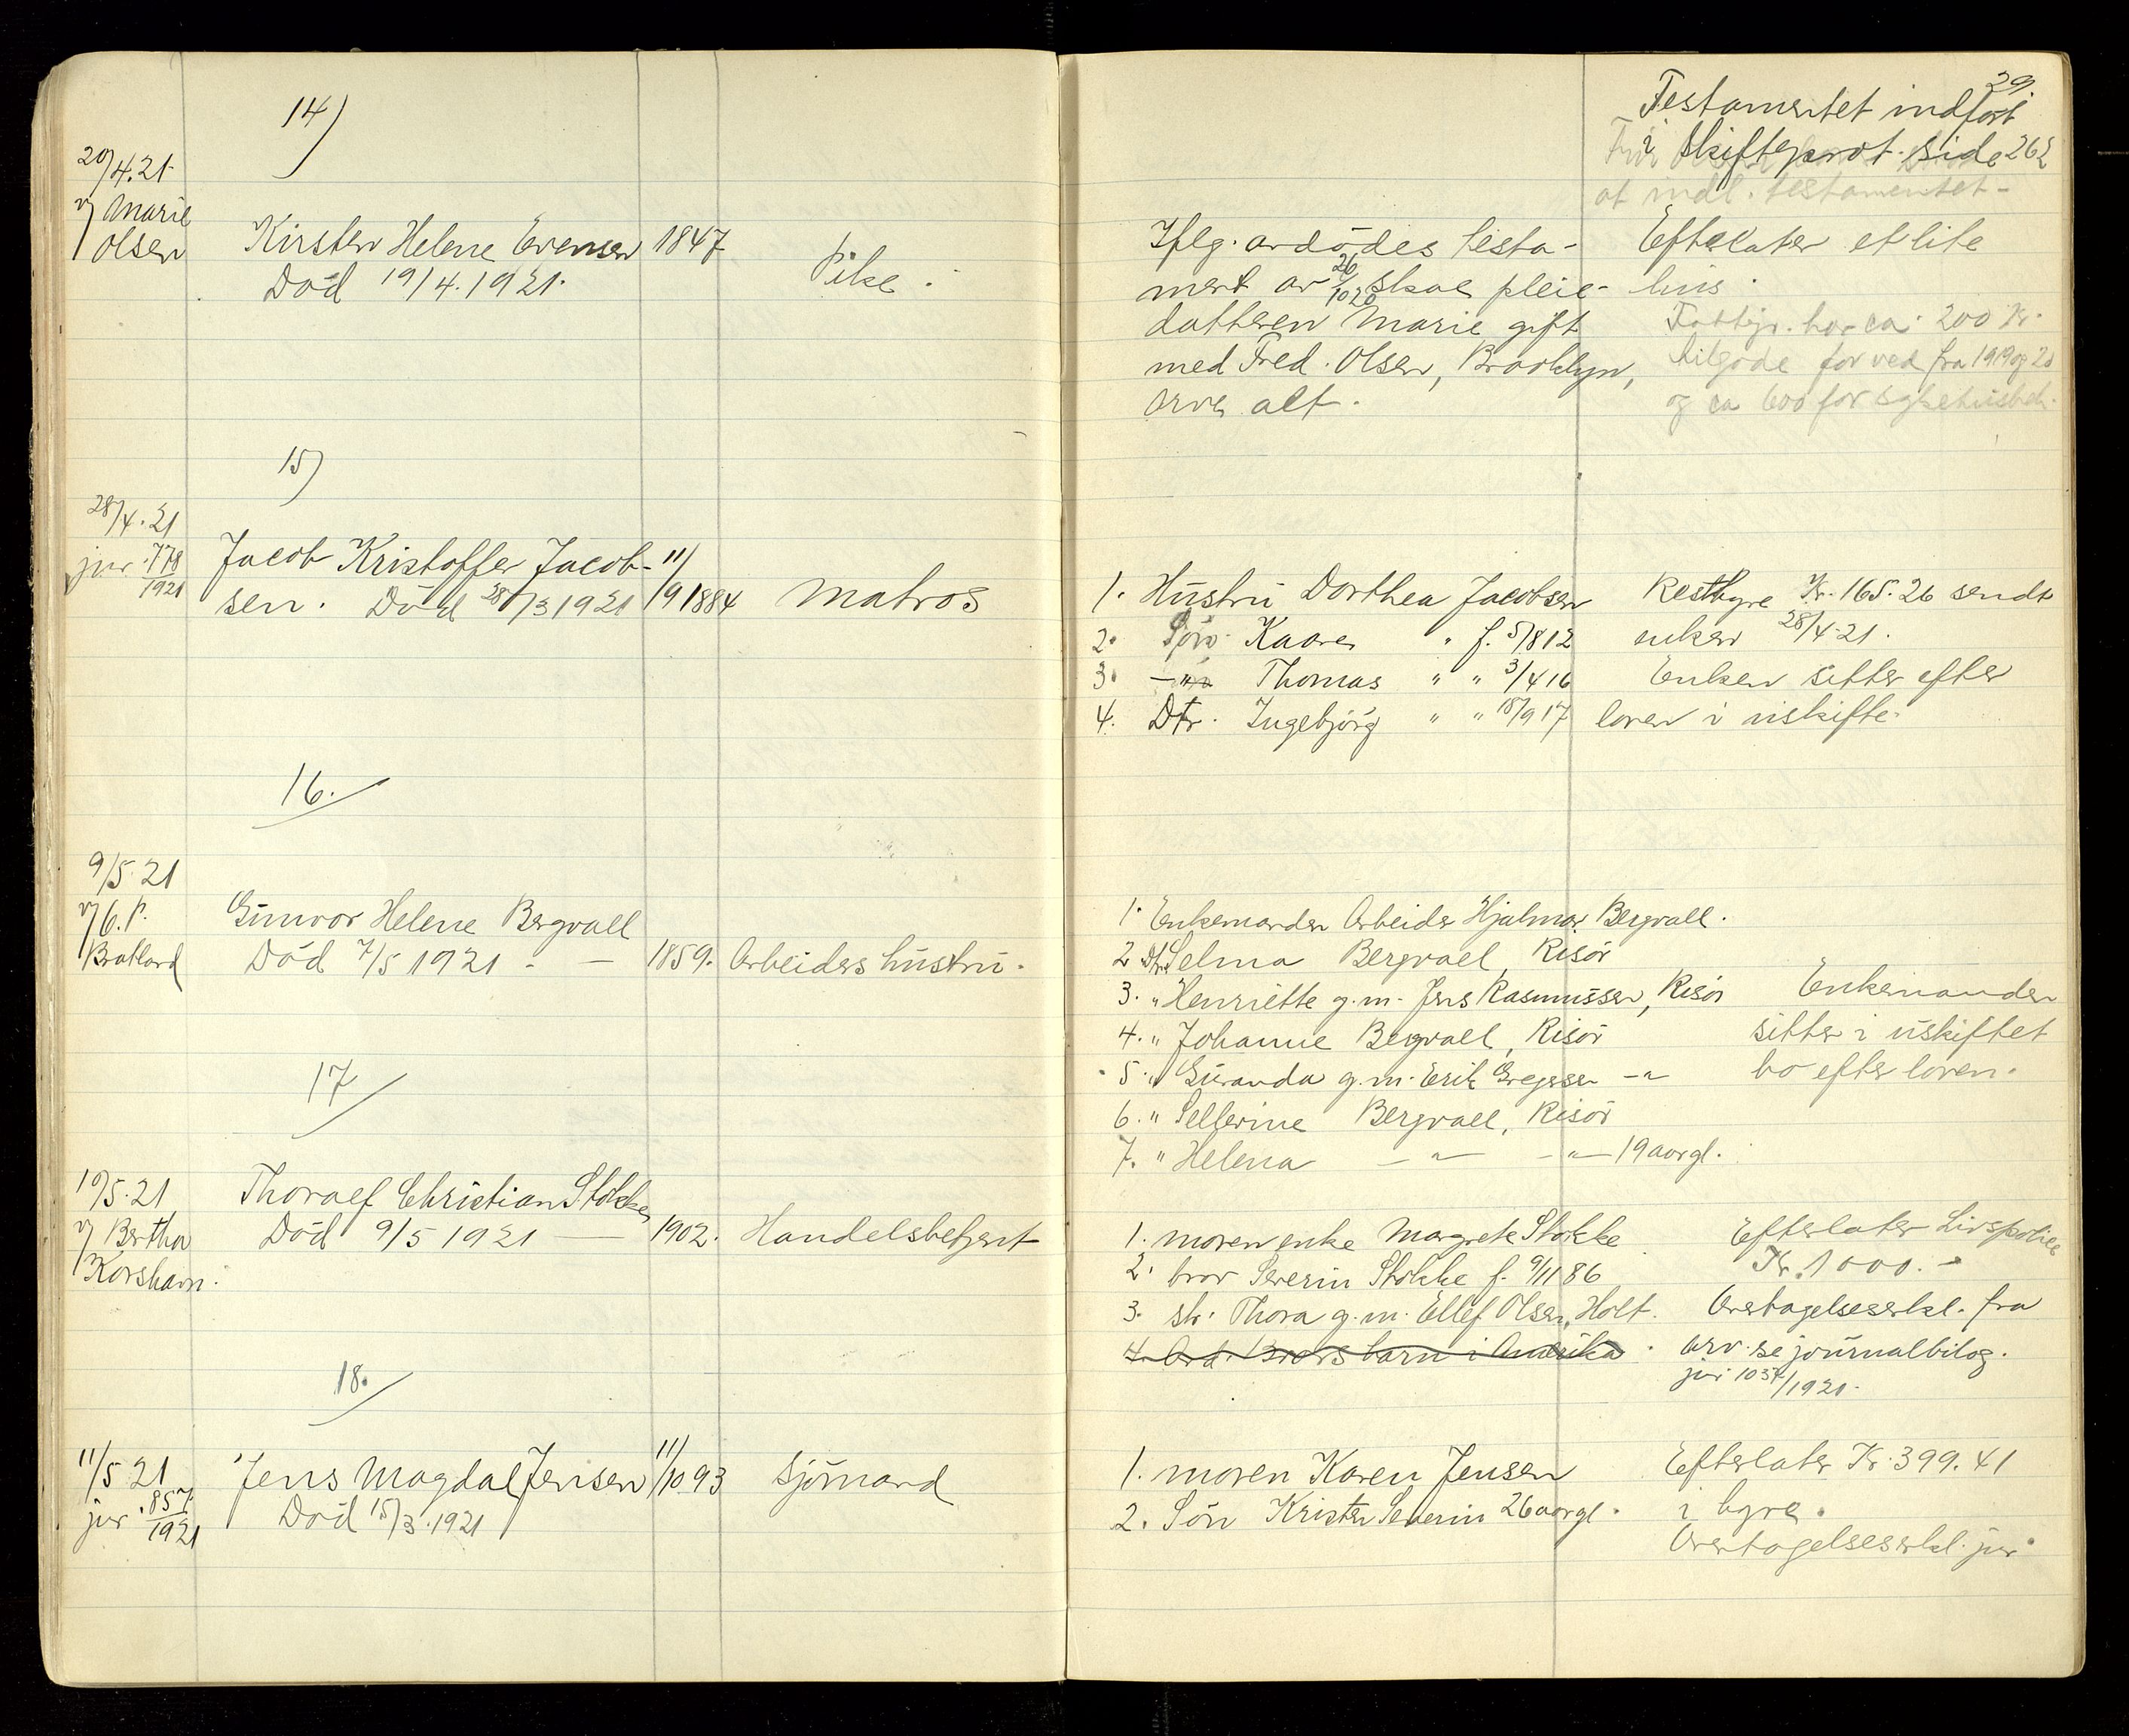 29.
14)
20/4.21
v/ Marie
Olsen
Kirsten Helene Evensen 1847
Död 19/4.1921.
Pike.
Iflg. avdödes testa-
ment av 26/10 20 skal pleie-
datteren Marie gift
med Fred. Olsen, Brooklyn,
arve alt.
Testamentet indfört
i Skifteprot. side 262
at indl. testamentet-
Efterlater et lite
hus.
Fattigv. har ca. 200 Kr.
tilgode for ved fra 1919 og 20
og ca 600 for sykehusbeh.
15)
28/4.21
jnr. 778/1921
Jacob Kristoffer Jacob-
sen. Död 28/3 1921
11/9 1884
Matros
1. Hustru Dorthea Jacobsen
2. Sön Kaare " f. 5/8 12
3. -"- Thomas " " 3/4 16
4. Dtr. Ingebjörg " " 18/9 17
Resthyre Kr. 165.26 sendt
enken 28/4-21.
Enken sitter efter
loven i uskifte.
16.
9/5.21
v/ C. P.
Bratland
Gunvor Helene Bergvall
Död 7/5 1921 - — 1859. Arbeiders hustru.
1. Enkemanden Arbeider Hjalmar Bergvall.
2 Dtr. Selma Bergvall, Risör
3. " Henriette g.m. Jens Rasmussen, Risör
4. " Johanne Bergvall, Risör
5. " Guranda g.m. Erik Gregersen -"-
6. " Sellerine Bergvall, Risör
7. " Helena -"- -"- 19 aar gl.
Enkemanden
sitter i uskiftet
bo efter loven.
17
10/5.21
v/ Bertha
Korshavn.
Thoralf Christian Stokke
Död 9/5 1921 — 1902. Handelsbetjent
1. moren enke Margrete Stokke
2. bror Severin Stokke f. 9/11 86
3. str. Thora g.m. Ellef Olsen, Holt.
4. Avd. Brors barn i Amerika.
Efterlater Livspolice
Kr. 1000.-
Overtagelseserkl. fra
arv. se journalbilag.
jnr 1037/1921.
18.
11/5 21
jnr. 857/1921
Jens Magdal Jensen 11/10 93 Sjömand
Död 15/3.1921
1. moren Karen Jensen
2. Sön Kristen Severin 26 aar gl.
Efterlater Kr. 399.41
i hyre.
Overtagelseserkl. jnr.